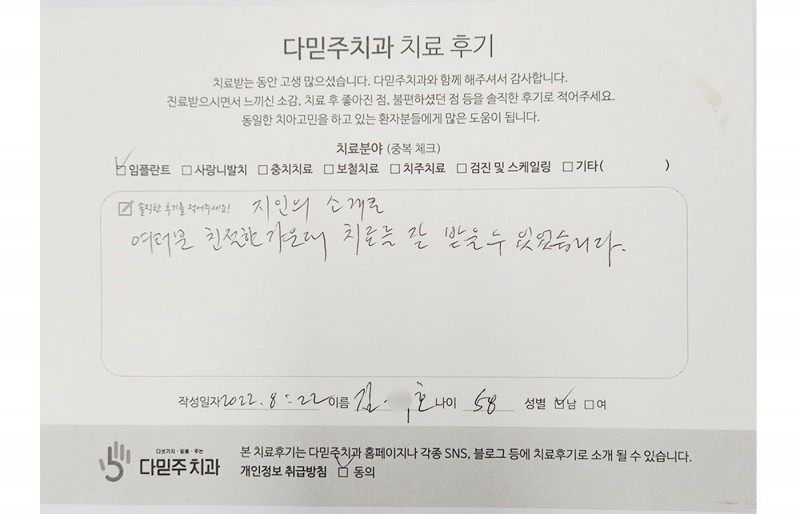 다믿주치과 치료 후기
치료받는 동안 고생 많으셨습니다. 다믿주치과와 함께 해주셔서 감사합니다.
진료받으시면서 느끼신 소감, 치료 후 좋아진 점, 불편하셨던 점 등을 솔직한 후기로 적어주세요.
동일한 치아고민을 하고 있는 환자분들에게 많은 도움이 됩니다.
치료분야 (중복 체크)
임플란트 사랑니발치 충치치료 보철치료 치주치료 검진 및 스케일링 기타( )
솔직한 후기를 적어주세요! 지인의 소개로
여러분 친절한 가운데 치료를 잘 받을 수 있었습니다.
작성일자 2022. 8. 22 이름 김 호 나이 58 성별 남 여
다섯가지·믿음·주는
다믿주치과
본 치료후기는 다믿주치과 홈페이지나 각종 SNS, 블로그 등에 치료후기로 소개 될 수 있습니다.
개인정보 취급방침 동의